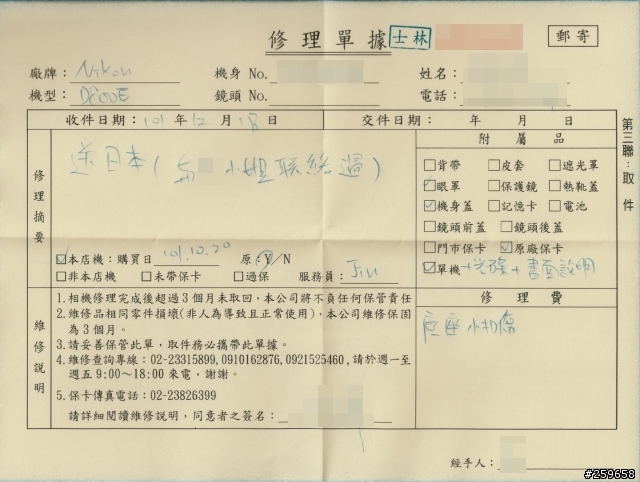 修理單據 士林 郵寄
廠牌：Nikon 機身 No. 姓名：
機型：D800E 鏡頭 No. 電話：
收件日期：101 年 12 月 18 日 交件日期： 年 月 日
第三聯：取件
修理摘要
送日本( 與 小姐聯絡過)
附屬品
背帶 皮套 遮光罩
眼罩 保護鏡 熱靴蓋
機身蓋 記憶卡 電池
鏡頭前蓋 鏡頭後蓋
門市保卡 原廠保卡
單機 +光碟+書面說明
本店機：購買日 101.10.20 原：Y/N
非本店機 未帶保卡 過保 服務員：
維修說明
1.相機修理完成後超過3個月未取回，本公司將不負任何保管責任
2.維修品相同零件損壞(非人為導致且正常使用)，本公司維修保固
為3個月。
3.請妥善保管此單，取件務必攜帶此單據。
4.維修查詢專線：02-23315899,0910162876,0921525460,請於週一至
週五9:00～18:00來電，謝謝。
5.保卡傳真電話：02-23826399
請詳細閱讀維修說明，同意者之簽名：
修理費
底座小刮傷
經手人：
#259658